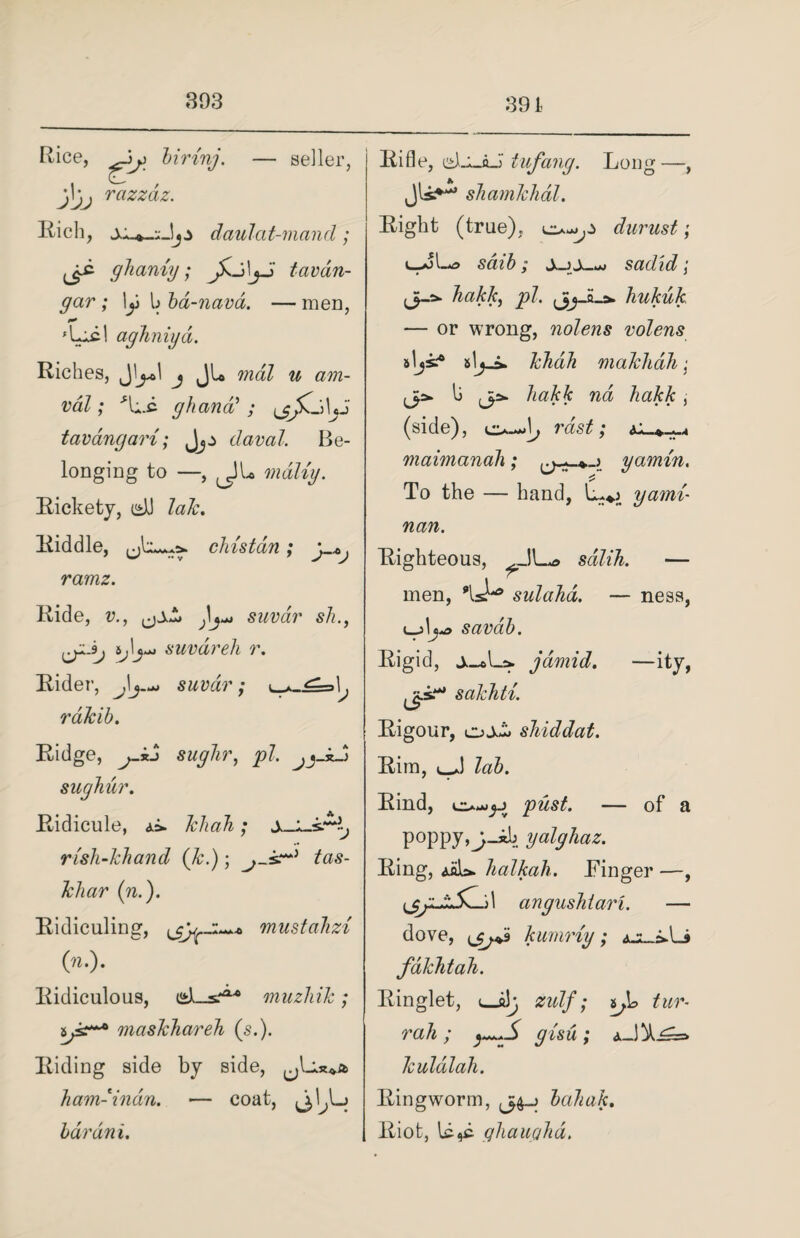 393
Rice, برنج birinj. — seller,
رزاز razzáz.
Rich, دولتمند daulat-mand;
غنی ghaniy; توانگر taván-
gar; با نوا bá-navá. — men,
اغنیاء aghniyá.
Riches, مال و اموال mál u am-
vál; غناء ghaná’; توانگری
tavángarí; دول daval. Be-
longing to —, مالی málíy.
Rickety, لك lak.
Riddle, چیستان chístán; رمز
ramz.
Ride, v., سوار شدن suvár sh.,
سواره رفتن suváreh r.
Rider, سوار suvár; راکب
rákib.
Ridge, ثغر sughr, pl. ثغور
sughúr.
Ridicule, خه khah; ریشخند
rísh-khand (k.); تسخر tas-
khar (n.).
Ridiculing, مستهزی mustahzí
(n.).
Ridiculous, مضحك muzhik;
مسخره maskhareh (s.).
Riding side by side, همعنان
ham-'inán. — coat, بارانی
báráni.
391
Rifle, تفنك tufang. Long —,
شمخال shamkhál.
Right (true), درست durust;
صائب sáib; سدید sadíd;
حق hakk, pl. حقوق hukúk
— or wrong, nolens volens
خواه مخواه kháh makháh;
حق نا حق hakk ná hakk;
(side), راست rást; میمنه
maimanah; یمین yamín.
To the — hand, یمینا yamí-
nan.
Righteous, صالح sálih. —
men, صلحاء sulahá. — ness,
صواب saváb.
Rigid, جامد jámid. —ity,
سختی sakhtí.
Rigour, شدت shiddat.
Rim, لب lab.
Rind, پوست púst. — of a
poppy, یلغز yalghaz.
Ring, حلقه halkah. Finger —,
انگشتری angushtarí. —
dove, قمری kumríy; فاخته
fákhtah.
Ringlet, زلف zulf; طره tur-
rah; گیسو gísú; کلاله
kulálah.
Ringworm, بهق bahak.
Riot, غوغا ghaughá.